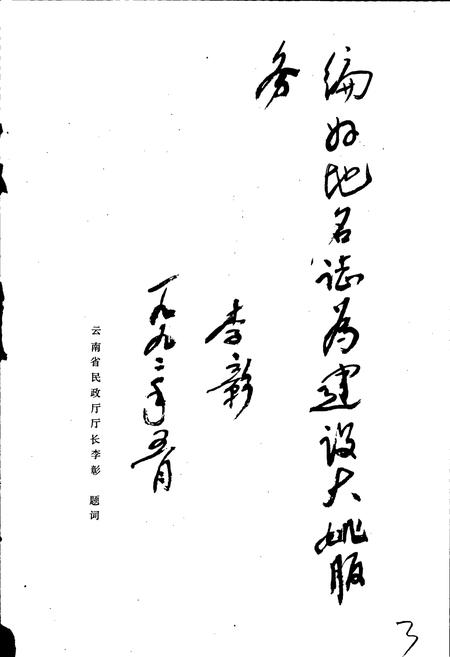 编好地名志为建设大姚服
务
李彰
一九九二年五月
云南省民政厅厅长李彰 题词
3